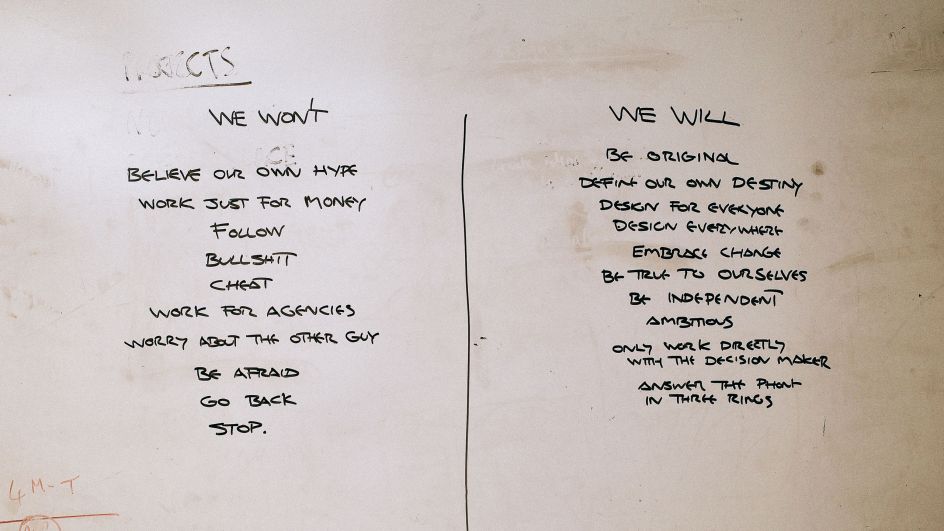 PROJECTS
WE WON'T
BELIEVE OUR OWN HYPE
WORK JUST FOR MONEY
FOLLOW
BULLSHIT
CHEAT
WORK FOR AGENCIES
WORRY ABOUT THE OTHER GUY
BE AFRAID
GO BACK
STOP.
WE WILL
BE ORIGINAL
DEFINE OUR OWN DESTINY
DESIGN FOR EVERYONE
DESIGN EVERYWHERE
EMBRACE CHANGE
BE TRUE TO OURSELVES
BE INDEPENDENT
AMBITIOUS
ONLY WORK DIRECTLY
WITH THE DECISION MAKER
ANSWER THE PHONE
IN THREE RINGS
4 M-T